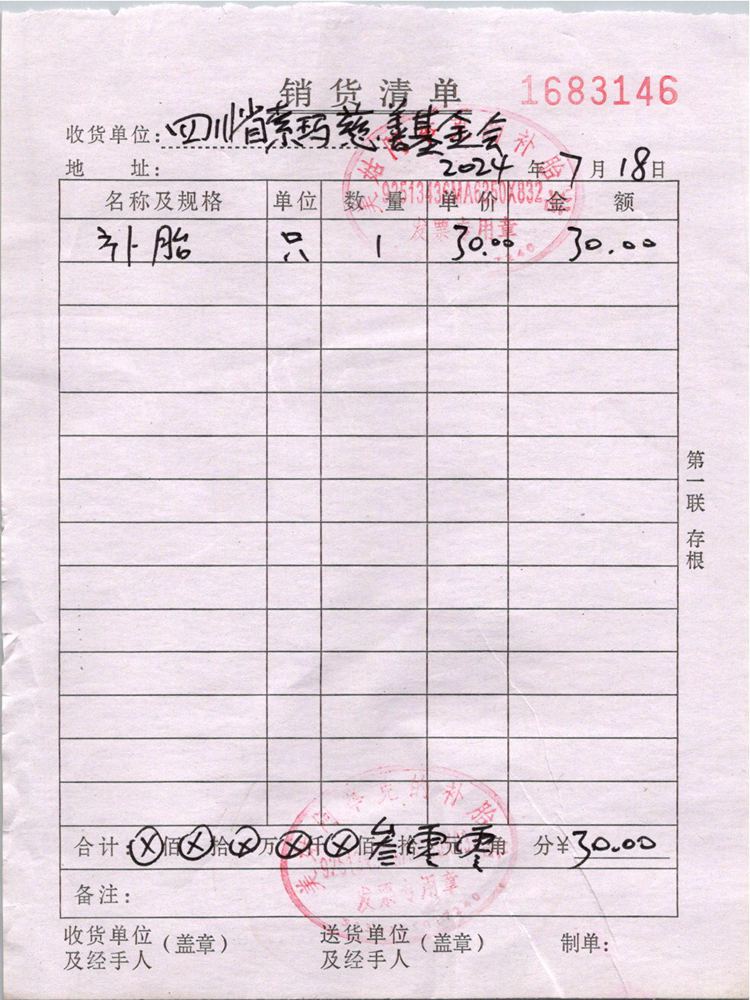 销货清单 1683146
收货单位：四川省索玛慈善基金会
地 址： 2024年7月18日
名称及规格 单位 数量 单价 金额
补胎 只 1 30.00 30.00
第一联 存根
合计：ⓧ佰ⓧ拾ⓧ万ⓧ仟ⓧ佰叁拾零元零角 分￥30.00
备注：
收货单位及经手人（盖章） 送货单位及经手人（盖章） 制单：
的补胎
发票专用章
的补胎
发票专用章